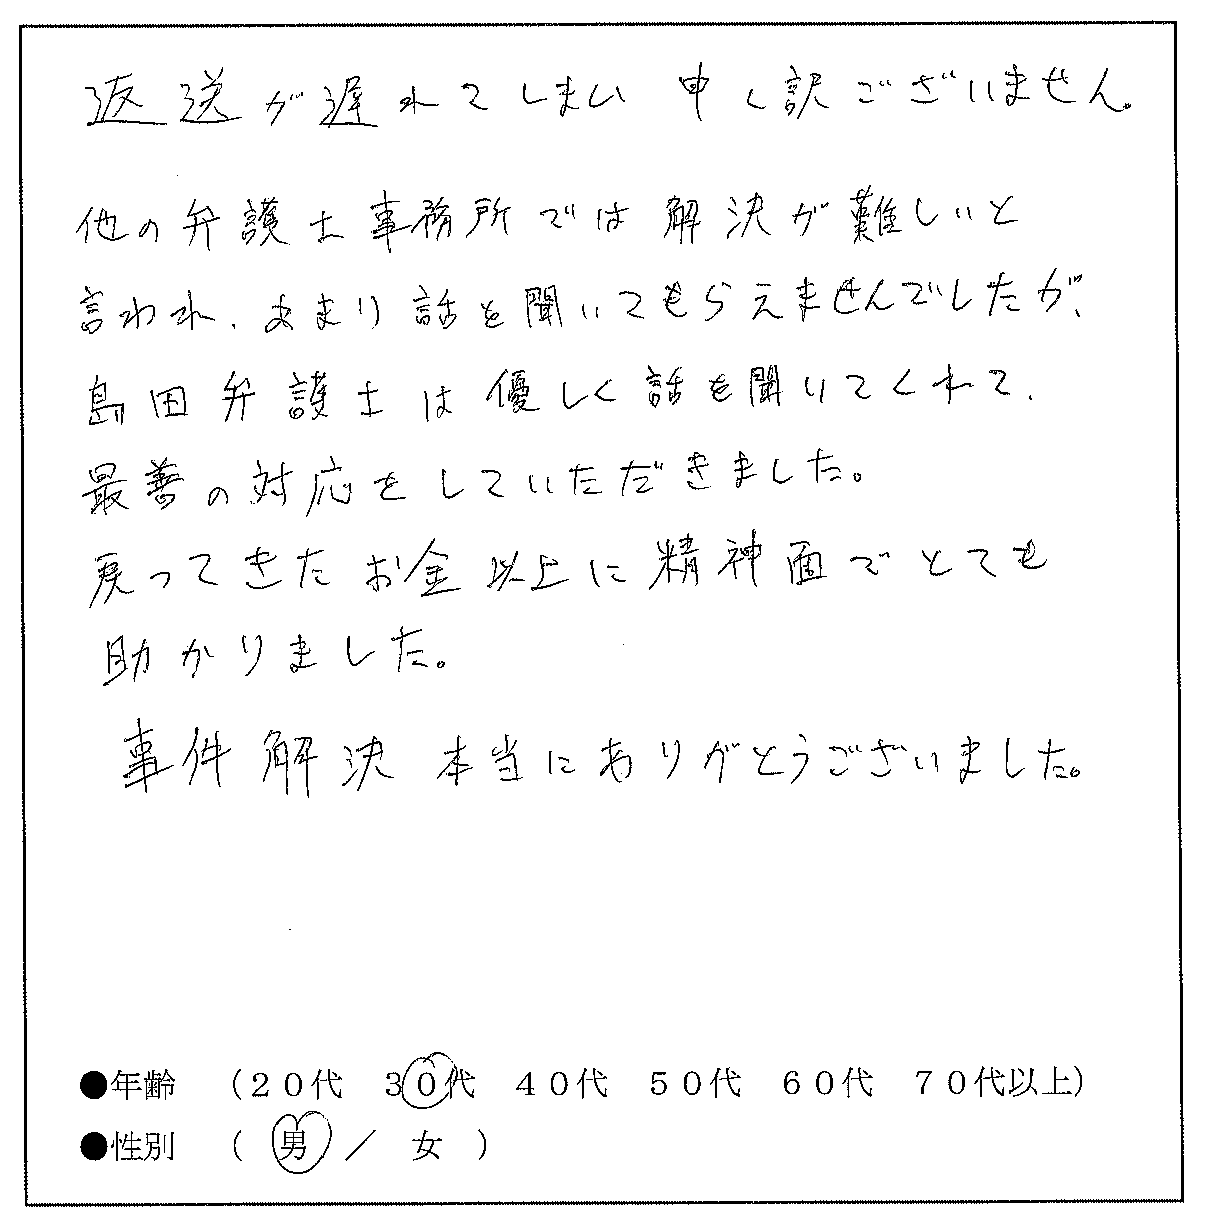 返送が遅れてしまい 申し訳ございません。
他の弁護士事務所では解決が難しいと
言われ、あまり話を聞いてもらえませんでしたが、
島田弁護士は優しく話を聞いてくれて、
最善の対応をしていただきました。
戻ってきたお金以上に精神面でとても
助かりました。
事件解決 本当にありがとうございました。
●年齢 （２０代 ３０代 ４０代 ５０代 ６０代 ７０代以上）
●性別 （ 男 ／ 女 ）